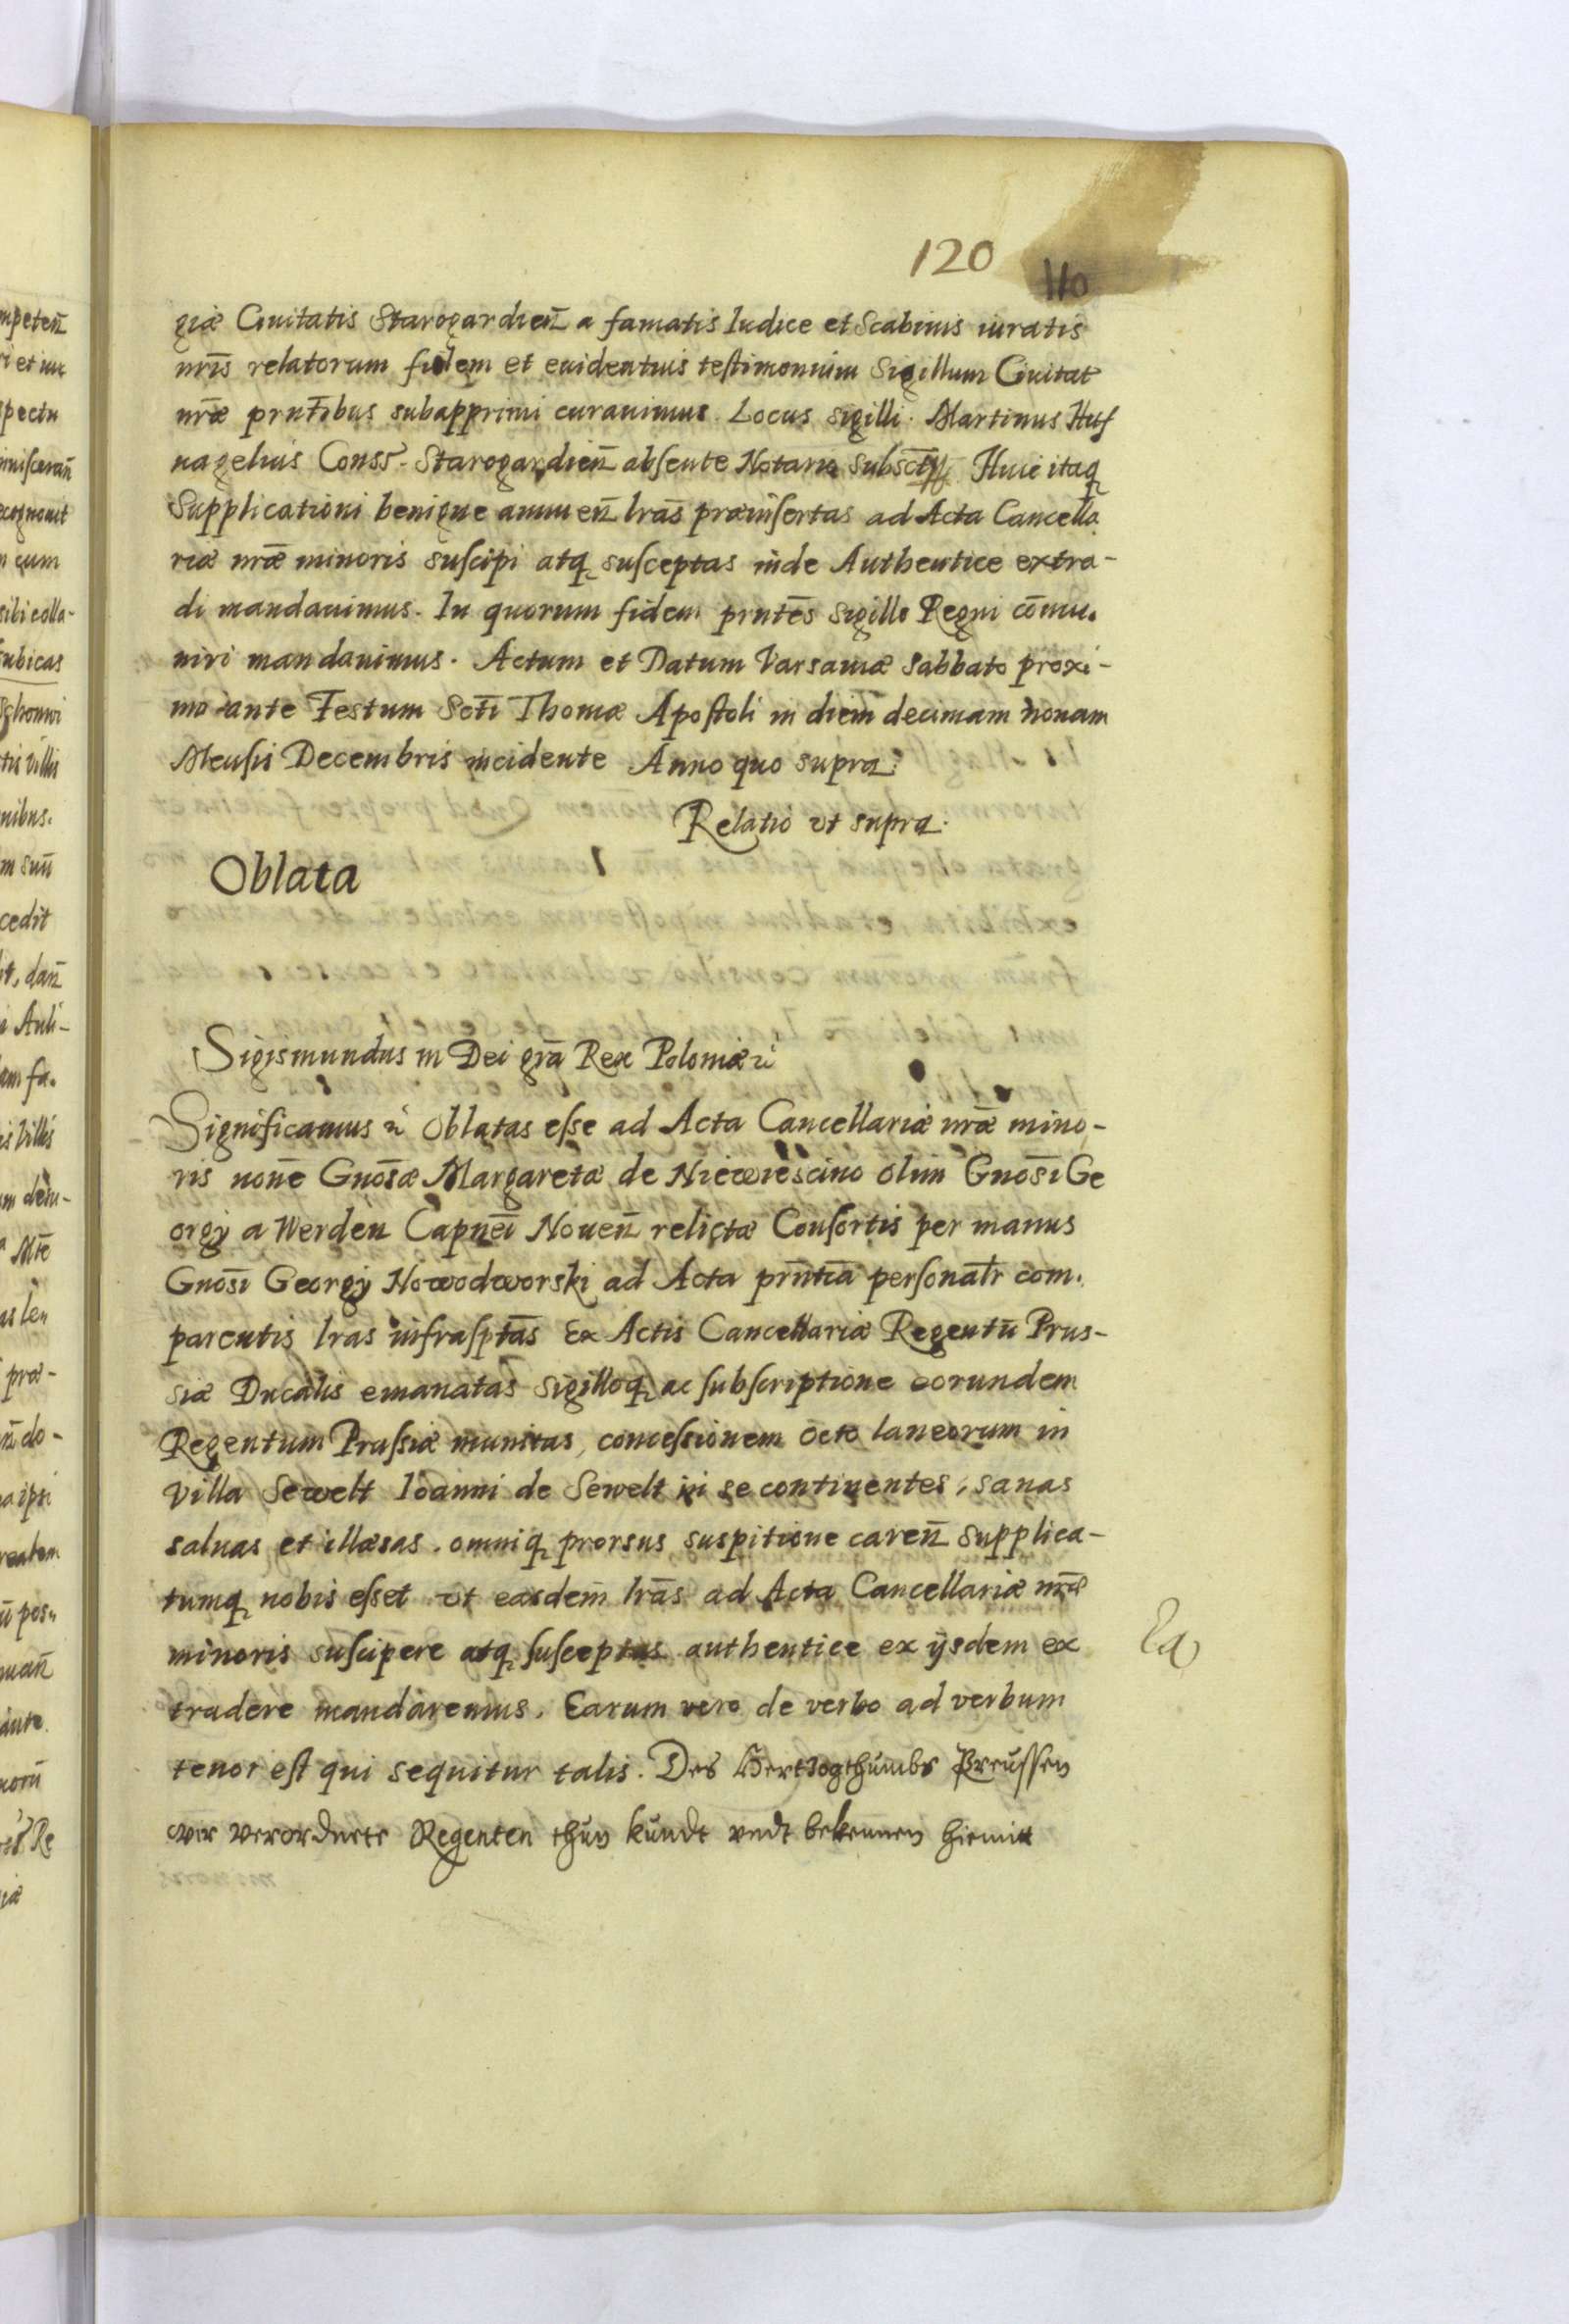 120
110
giæ Ciuitatis Starogardieñ a famatis Iudice et Scabinis iuratis
nr̃is relatorum fidem et euidentius testimonium Sigillum Ciuitat
nr̃æ prnt̃ibus subapprimi curauimus. Locus sigilli. Martinus Huf
nagelius Conss. Starogardieñ absente Notario subscr̃. Huic itaq
Supplicationi benigne annueñ lrãs præinsertas ad Acta Cancella
riæ nr̃æ minoris suscipi atq susceptas inde Authentice extra-
di mandauimus. In quorum fidem prntẽs sigillo Regni cõmu.
niri mandauimus. Actum et Datum Varsauiæ Sabbato proxi-
mo ante Festum Sctĩ Thomæ Apostoli in diem decimam nonam
Mensis Decembris incidente Anno quo supra
Relatio vt supra.
Oblata
Sigismundus III Dei grã Rex Poloniæ ꝛc̃
Significamus ꝛc̃ Oblatas esse ad Acta Cancellariæ nr̃æ mino-
ris noñe Gnõsæ Margaretæ de Niewiescino olim Gnõsi Ge
orgij a Werden Capneĩ Noueñ relictæ Consortis per manus
Gnosĩ Georgij Nowodworski ad Acta prñtia personalr̃ com.
parentis lras infrasptãs Ex Actis Cancellariæ Regentũ Prus-
siæ Ducalis emanatas Sigilloq ac subscriptione eorundem
Regentum Prussiæ munitas, concessionem octo laneorum in
Villa Sewelt Ioanni de Sewelt in se continentes, sanas
saluas et illæsas. omniq prorsus suspitione careñ supplica-
tumq nobis esset vt easdem lrãs ad Acta Cancellariæ nr̃æ
minoris suscipere atq susceptas authentice ex ijsdem ex
tradere mandaremus. Earum vero de verbo ad verbum
tenor est qui sequitur talis. Des Hertzogthumbs Preussen
wir verordnete Regenten thun kundt vndt bekennen hiemitt